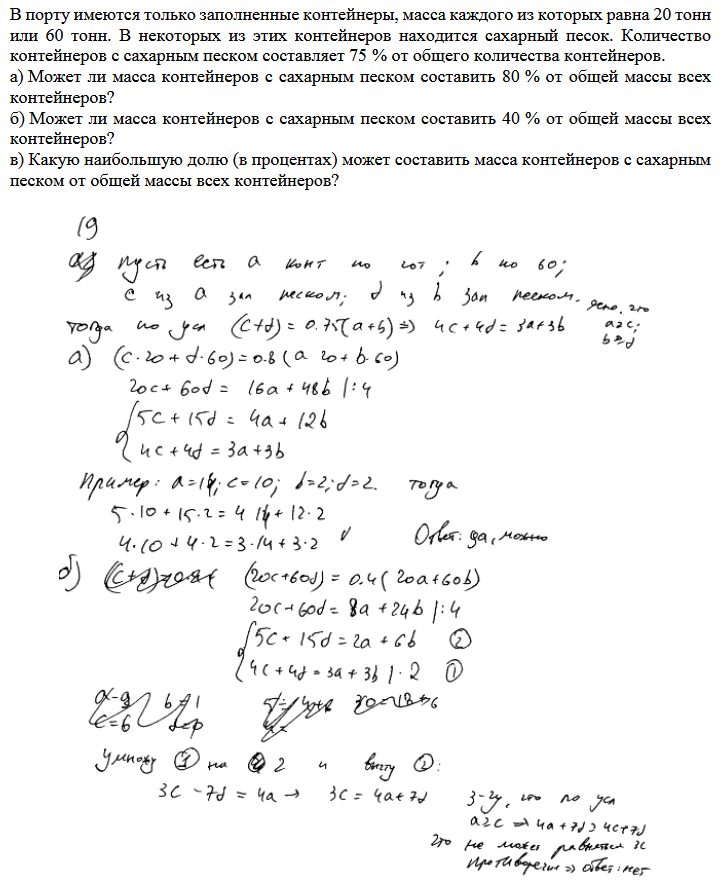 В порту имеются только заполненные контейнеры, масса каждого из которых равна 20 тонн
или 60 тонн. В некоторых из этих контейнеров находится сахарный песок. Количество
контейнеров с сахарным песком составляет 75 % от общего количества контейнеров.
а) Может ли масса контейнеров с сахарным песком составить 80 % от общей массы всех
контейнеров?
б) Может ли масса контейнеров с сахарным песком составить 40 % от общей массы всех
контейнеров?
в) Какую наибольшую долю (в процентах) может составить масса контейнеров с сахарным
песком от общей массы всех контейнеров?
19
Пусть есть a конт по 20т; b по 60;
c из a зап песком; d из b зап песком. Ясно, что
a≥c;
b≥d
тогда по усл (c+d) = 0.75(a+b) => 4c+4d = 3a+3b
а) (c·20 + d·60) = 0.8 (a 20 + b·60)
20c + 60d = 16a + 48b |:4
5c + 15d = 4a + 12b
4c + 4d = 3a + 3b
Пример: a=14; c=10; b=2; d=2. тогда
5·10 + 15·2 = 4 14 + 12·2
4·10 + 4·2 = 3·14 + 3·2 ✓
Ответ: да, можно
б) (20c+60d) = 0.4 (20a+60b)
20c+60d = 8a + 24b |:4
5c + 15d = 2a + 6b ②
4c + 4d = 3a + 3b |·2 ①
Умножу ① на 2 и вычту ②:
3c - 7d = 4a → 3c = 4a + 7d
З-чу, что по усл
a≥c => 4a+7d ≥ 4c+7d
Что не может равняться 3c
Противоречие => Ответ: нет